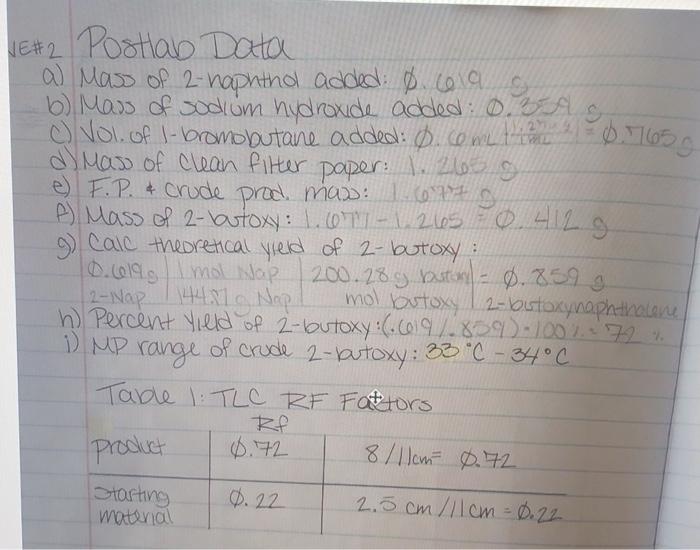 NE#2 Postlab Data
a) Mass of 2-naphthol added: 0.619 g
b) Mass of sodium hydroxide added: 0.359 g
c) Vol. of 1-bromobutane added: 0.6mL = 0.765g
d) Mass of clean filter paper: 1.265 g
e) F.P. + crude prod. mass: 1.677 g
f) Mass of 2-butoxy: 1.677 - 1.265 = 0.412 g
g) Calc theoretical yield of 2-butoxy:
0.619g | 1 mol Nap | 200.28g = 0.859 g
2-Nap | g Nap | mol butoxy | 2-butoxynaphthalene
h) Percent Yield of 2-butoxy: (.619/.859)·100% = 72 %
i) MP range of crude 2-butoxy: 33°C - 34°C
Table 1: TLC RF Factors
Rf
product 0.72 8/11cm= 0.72
Starting 0.22 2.5 cm/11cm = 0.22
material